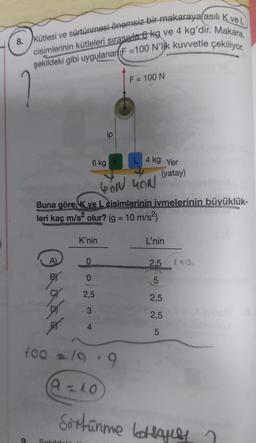 8. Kütlesi ve sürtünmesi önemsiz bir makaraya asılı K ve L
cisimlerinin kütleleri sırasıyla 6 kg ve 4 kg'dir. Makara,
şekildeki gibi uygulanan F =100 N'lik kuvvetle çekiliyor.
F = 100 N
ip
6 kg
L
4 kg
Yer
(yatay)
60N 40N
Buna göre, K ve L cisimlerinin ivmelerinin büyüklük-
leri kaç m/s² olur? (g = 10 m/s²)
K'nin L'nin
A) 0 2,5
B) 0 5
C) 2,5 2,5
D) 3 2,5
E) 4 5
100 = 10 . a
a = 10
Sürtünme